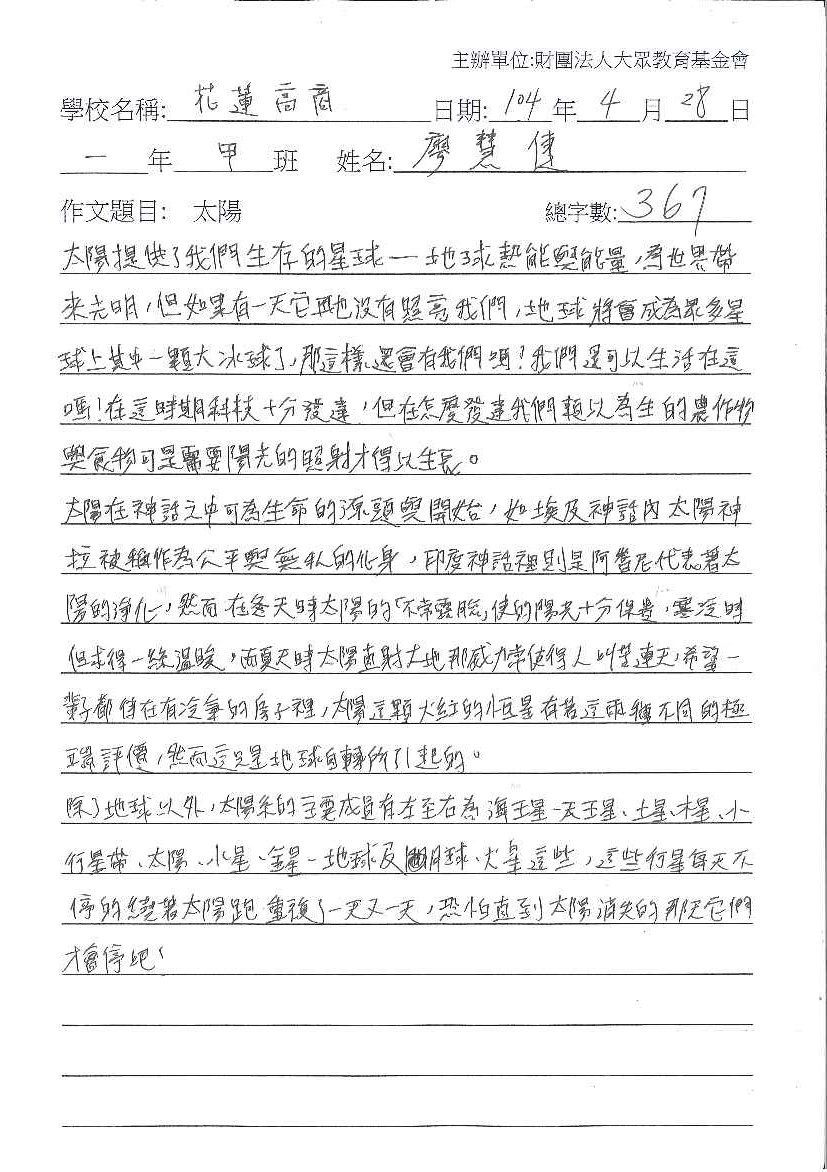 主辦單位:財團法人大眾教育基金會
學校名稱: 花蓮高商 日期: 104 年 4 月 28 日
一 年 甲 班 姓名: 廖慧倢
作文題目: 太陽 總字數: 367
太陽提供了我們生存的星球—地球熱能與能量,為世界帶
來光明,但如果有一天它再也沒有照亮我們,地球將會成為眾多星
球上其中一顆大冰球了,那這樣還會有我們嗎?我們還可以生活在這
嗎!在這時期科技十分發達,但在怎麼發達我們賴以為生的農作物
與食物可是需要陽光的照射才得以生長。
太陽在神話之中可為生命的源頭與開始,如埃及神話內太陽神
拉被稱作為公平與無私的化身,印度神話裡則是阿耆尼代表著太
陽的淨化,然而在冬天時太陽的「不常露臉」使的陽光十分保貴,寒冷時
但求得一絲溫暖,而夏天時太陽直射大地那威力常使得人叫苦連天,希望一
輩子都待在有冷氣的房子裡,太陽這顆火紅的恆星有著這兩種不同的極
端評價,然而這只是地球自轉所引起的。
除了地球以外,太陽系的主要成員有左至右為海王星、天王星、土星、木星、小
行星帶、太陽、水星、金星、地球及月球、火星這些,這些行星每天不
停的繞著太陽跑重複了一天又一天,恐怕直到太陽消失的那天它們
才會停吧!